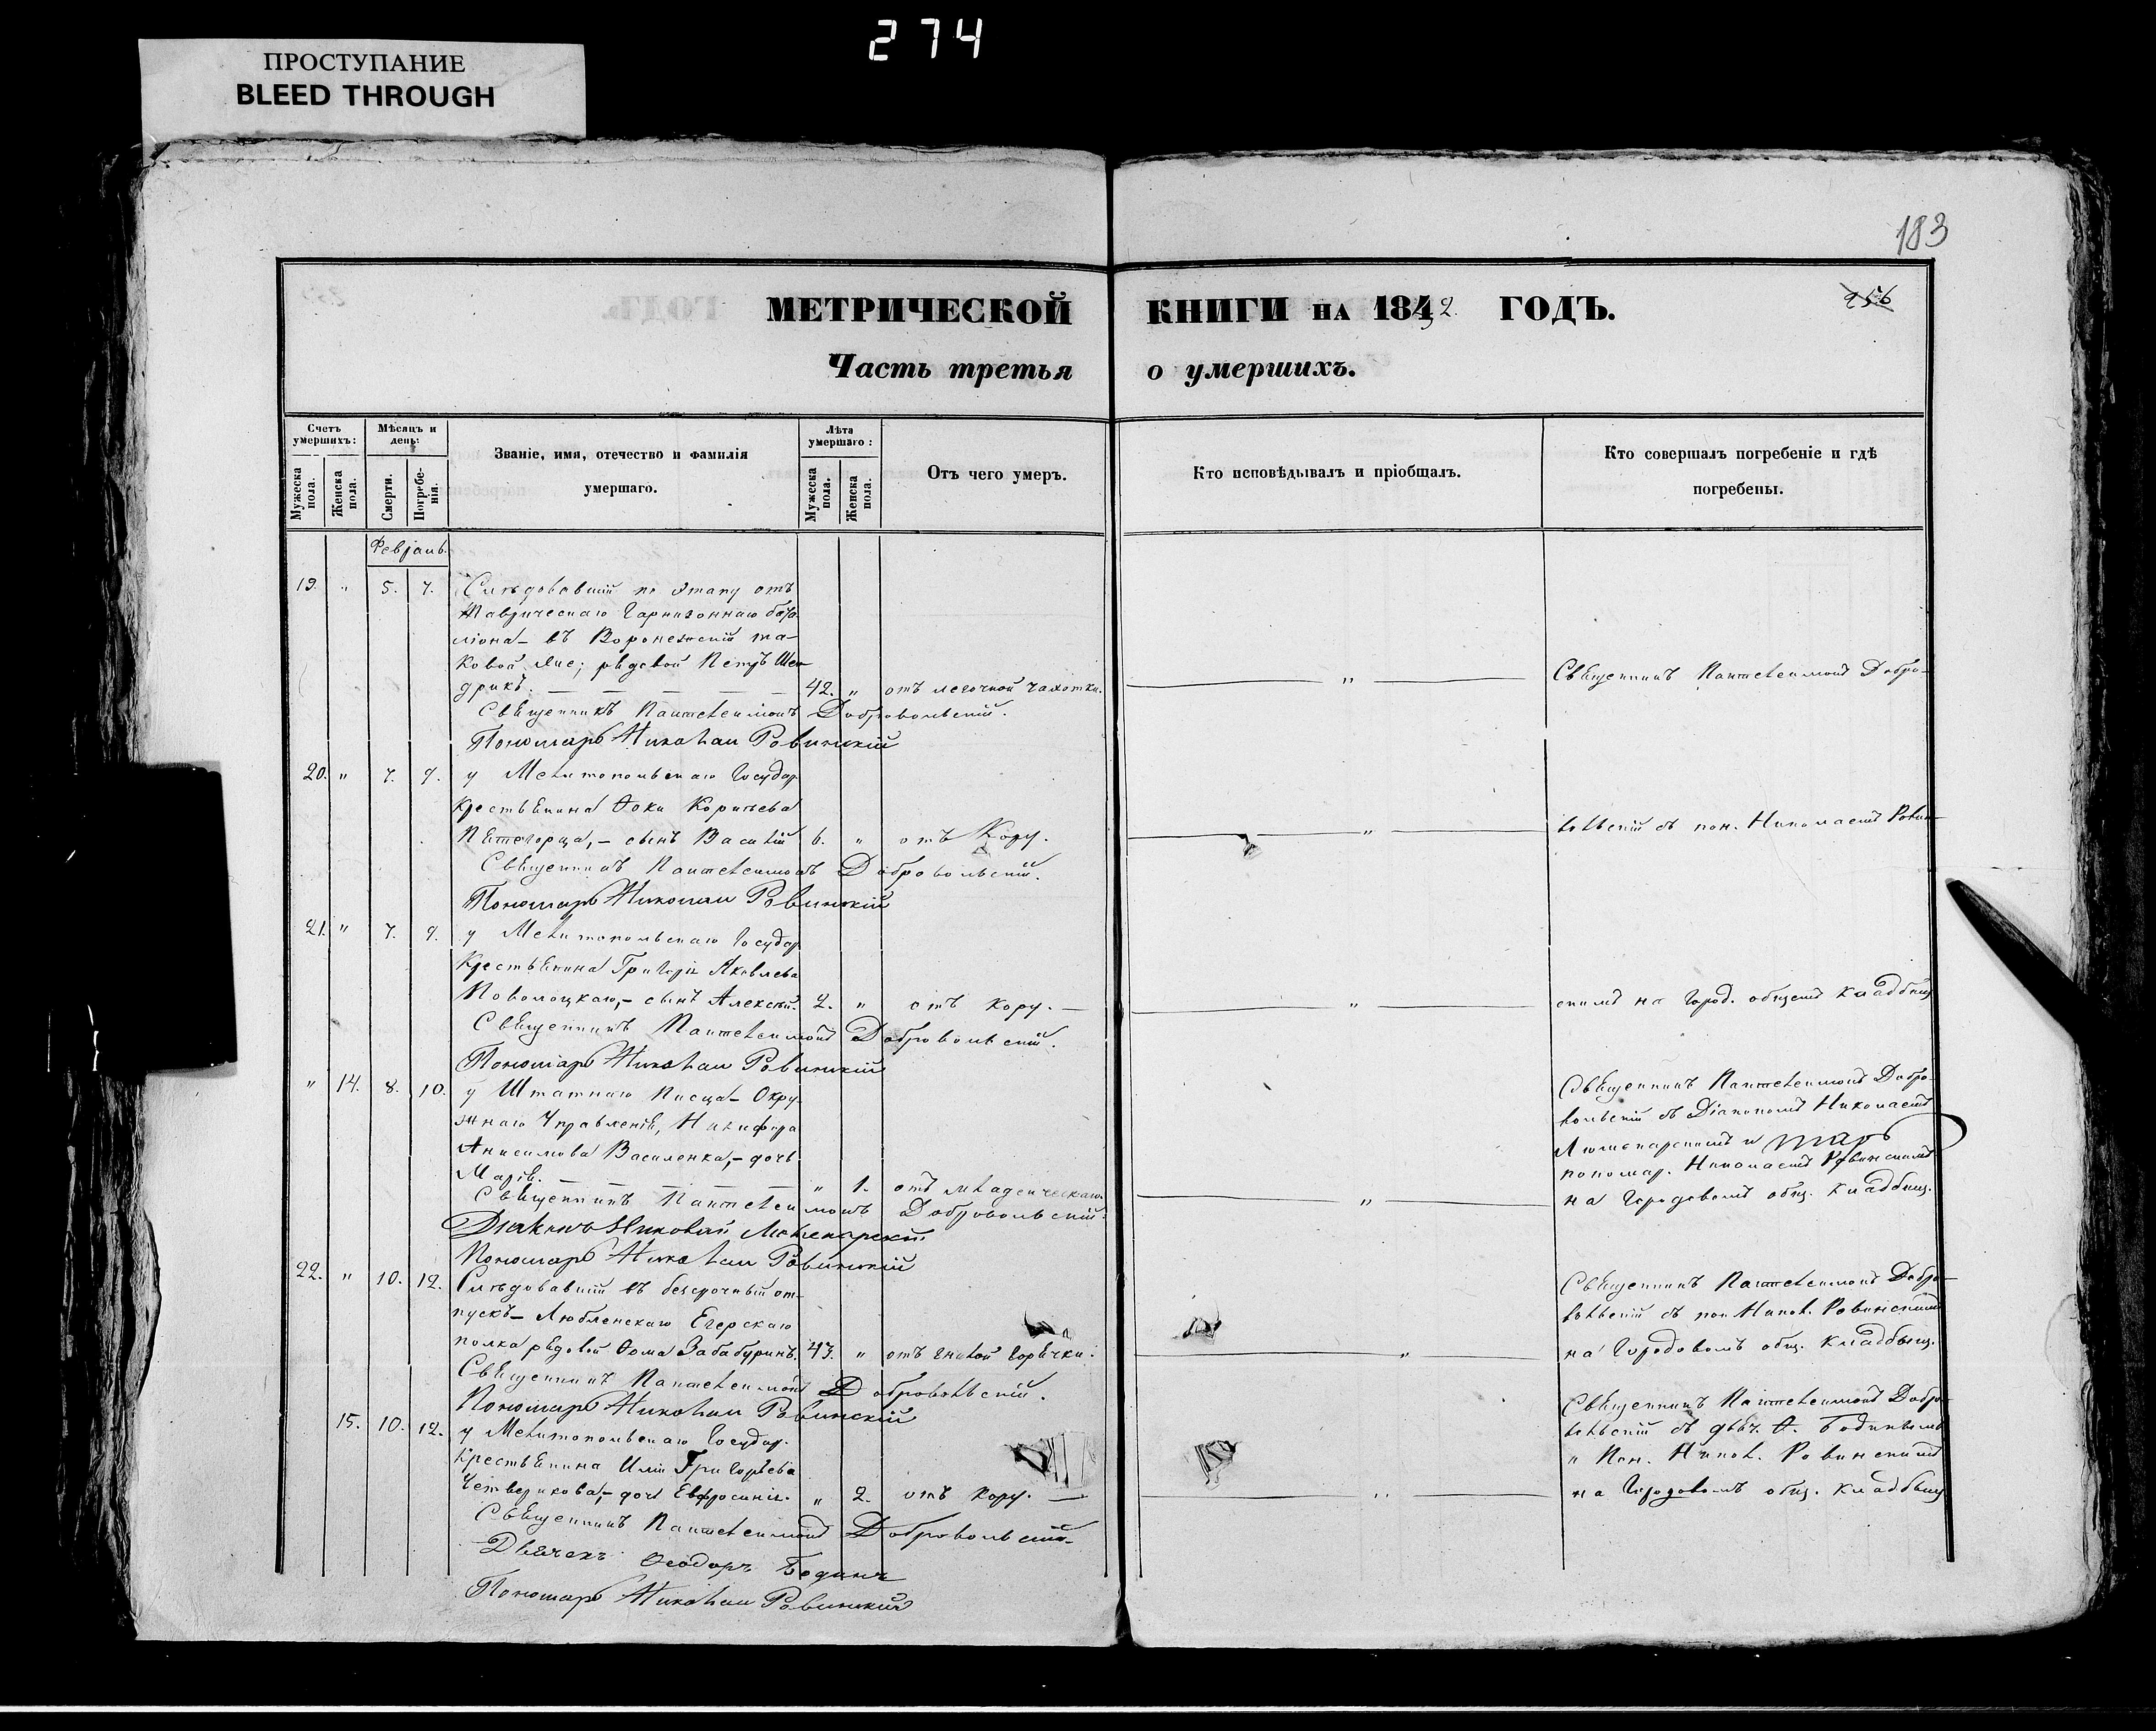 274
ПРОСТУПАНИЕ
BLEED THROUGH
183
256
МЕТРИЧЕСКОЙ КНИГИ НА 1842 ГОДЪ.
Часть третья о умершихъ.
Счетъ умершихъ:
Мужеска пола.
Женска пола.
Мѣсяцъ и день:
Смерти.
Погребенія.
Званіе, имя, отечество и фамилія
умершаго.
Лѣта умершаго:
Мужеска пола.
Женска пола.
Отъ чего умеръ.
Кто исповѣдывалъ и пріобщалъ.
Кто совершалъ погребеніе и гдѣ
погребены.
19. " 5. 7. Слѣдовавшій по этапу отъ
Таврическаго Гарнизоннаго бата-
ліона въ Воронежскій та-
ковой же; рядовой Петръ
дрикъ. 42. " отъ легочной чахотки. " Священникъ Пантелеимонъ Добро-
Священникъ Пантелеимонъ Добровольскій.
Пономарь Николай Ровинскій
20. " 7. 9. у Мелитопольскаго Государ.
крестьянина Фоки
сынъ Василій 6. " отъ Кору. " вольскій съ пон. Николаемъ Ровин-
Священникъ Пантелеимонъ Добровольскій.
Пономарь Николай Ровинскій
21. " 7. 9. у Мелитопольскаго Государ.
Крестьянина Григорія Яковлева
Поволоцкаго, – сынъ Алексѣй. 2. " отъ кору. – " скимъ на Город. общемъ кладбищ.
Священникъ Пантелеимонъ Добровольскій.
Пономарь Николай Ровинскій
" 14. 8. 10. у Штатнаго Писца Окру- Священникъ Пантелеимонъ Добро-
жнаго Управленія, Никифора вольскій съ Діакономъ Николаемъ
Анисимова Василенка, – дочь
Марія. " 1. отъ младенческаго. " пономар. Николаемъ Ровинскимъ
Священникъ Пантелеимонъ Добровольскій. на Городовомъ общ. кладбищ.
Діаконъ Николай
Пономарь Николай Ровинскій
22. " 10. 12. Слѣдовавшій въ безсрочный от- Священникъ Пантелеимонъ Добро-
пускъ Люблинскаго Егерскаго вольскій съ пон. Никол. Ровинскимъ
полка рядовой Фома Забабуринъ. 43. " отъ гнилой горячки. " на Городовомъ общ. кладбищ.
Священникъ Пантелеимонъ Добровольскій.
Пономарь Николай Ровинскій
15. 10. 12. у Мелитопольскаго Государ. Священникъ Пантелеимонъ Добро-
крестьянина Иліи Григорьева вольскій съ дьяч. Ѳ. Бодинымъ
Четверикова, – дочь Евфросинія. " 2. отъ кору. – " Пон. Никол. Ровинскимъ
Священникъ Пантелеимонъ Добровольскій. на Городовомъ общ. кладбищ.
Дьячекъ Ѳеодоръ Бодинъ
Пономарь Николай Ровинскій